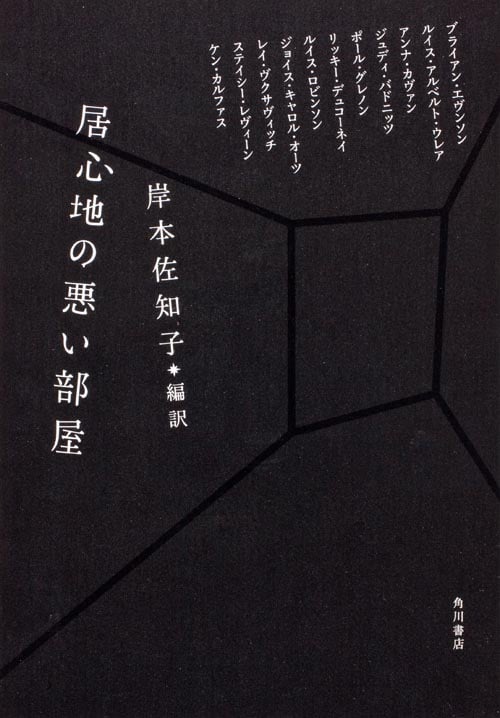 ブライアン・エヴンソン
ルイス・アルベルト・ウレア
アンナ・カヴァン
ジュディ・バドニッツ
ポール・グレノン
リッキー・デュコーネイ
ルイス・ロビンソン
ジョイス・キャロル・オーツ
レイ・ヴクサヴィッチ
ステイシー・レヴィーン
ケン・カルファス
岸本佐知子*編訳
居心地の悪い部屋
角川書店